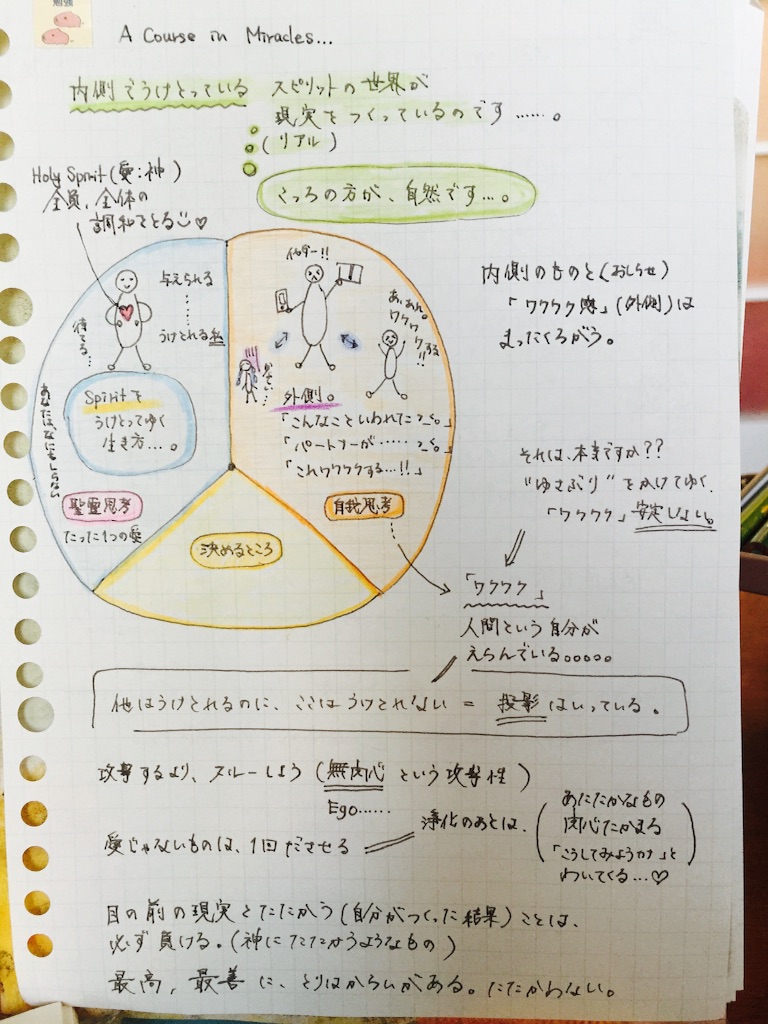 勉強
A Course in Miracles...
内側でうけとっている スピリットの世界が
現実をつくっているのです……。
(リアル)
こっちの方が、自然です…。
Holy Spirit (愛:神)
全員、全体の
調和をとる♡
与えられる
……
うけとれる私
待てる…
あなたは、なにもしらない
Spiritを
うけとってゆく
生き方…。
聖霊思考
たった1つの愛
決めるところ
あぁ、あれ。
ワクワク
する!!
外側。
「こんなこといわれた>_<。」
「パートナーが……>_<。」
「これワクワクする…!!」
自我思考
内側のものと(おしらせ)
「ワクワク感」(外側)は
まったくちがう。
それは、本当ですか??
"ゆさぶり"をかけてゆく.
「ワクワク」安定しない。
「ワクワク」
人間という自分が
えらんでいる。。。。。
他はうけとれるのに、ここはうけとれない = 投影はいっている。
攻撃するより、スルーしよう (無関心という攻撃性)
Ego……
愛じゃないものは、1回ださせる
浄化のあとは、
あたたかなもの
関心たかまる
「こうしてみようか」と
わいてくる…♡
目の前の現実とたたかう(自分がつくった結果)ことは、
必ず負ける。(神にたたかうようなもの)
最高、最善に、とりはからいがある。たたかわない。